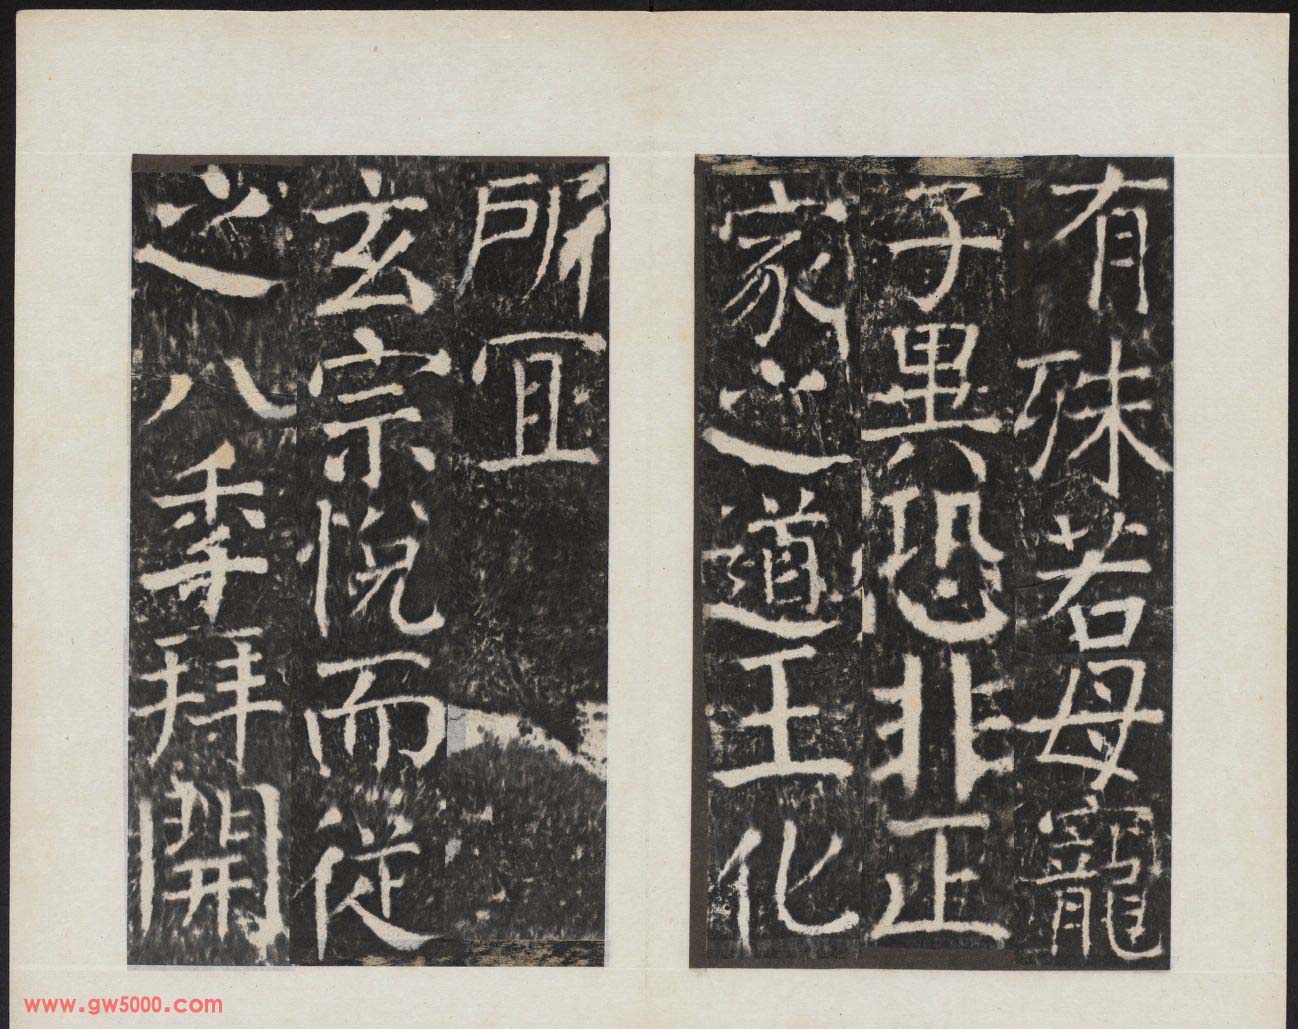 有殊若母寵
子異恐非正
家之道王化
所冝
玄宗悅而從
之八秊拜開
www.gw5000.com